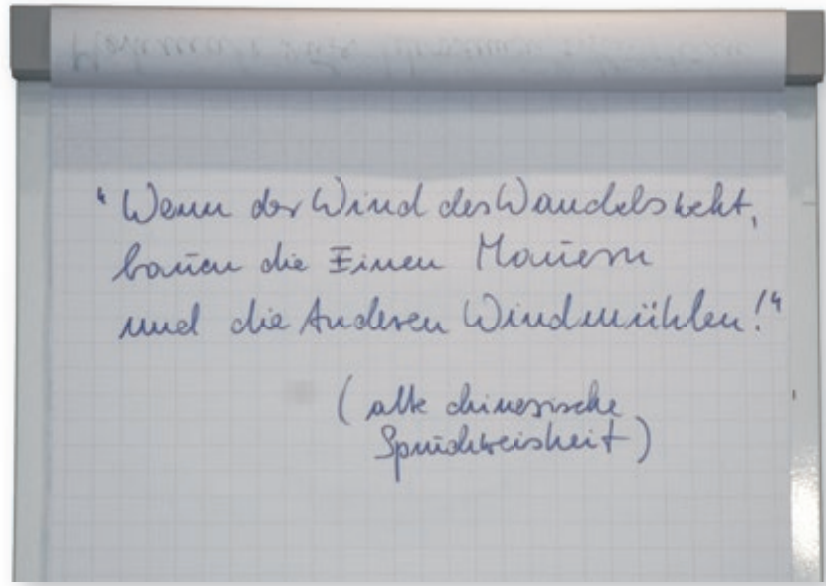 "Wenn der Wind des Wandels weht,
bauen die Einen Mauern
und die Anderen Windmühlen!"
(alte chinesische
Spruchweisheit)